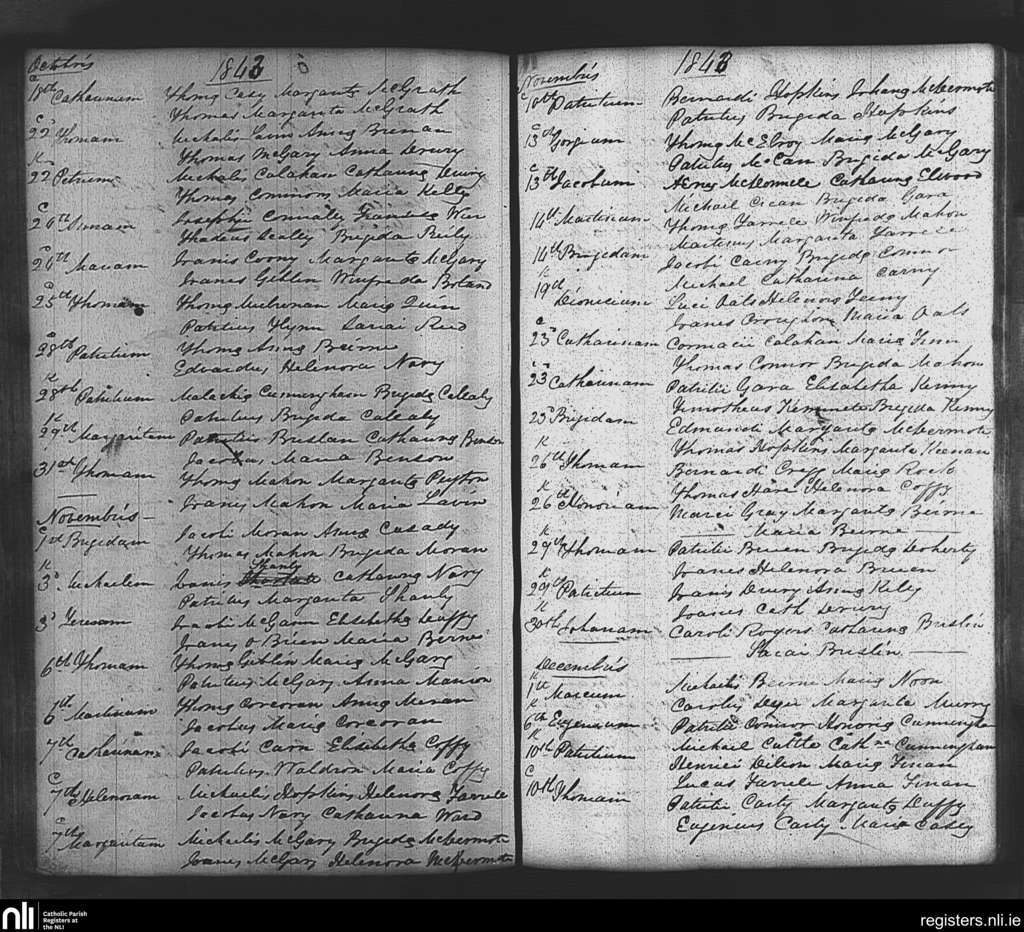 Octobris
1843
18th Catharinam Thoma Casy Margarita McGrath
Thomas Margarita McGrath
C
22d Thomam Michalis Anna Brenan
Thomas McGary Anna Drury
K
22 Petrum Michalis Calahan Catharina Drury
Thomas Connors Maria Kelly
C
24th Josephi Connaley Wier
Thadeus Healey Brigida Reily
C
24th Mariam Joanis Coony Margarita McGary
Joanes Giblin Winfreda Boland
C
25th Thomam Thoma McLenan Maria Quin
Patritius Flynn Sarai Reid
C
28th Patritium Thoma Anna Beirne
Edvardus Helenora Navy
K
28th Patritium Malachia Cunningham Brigida Callaly
Patritius Brigida Callaly
K
29th Margaritam Patritii Breslan Catharina Benson
Jacobus Maria Benson
31st Thomam Thoma Mahon Margarita Peyton
Joanes Mahon Maria Lavin
Novembris
C
1st Brigidam Jacobi Moran Anna Casady
Thomas Mahon Brigida Moran
K
Shanly
3d Michaelem Joanis Catharina Navy
Patritius Margarita Shanly
3d Teresam Jacobi McGann Elisabetha Duffy
Joanes O Brien Maria Berne
6th Thomam Thoma Giblin Maria McGary
Patritius McGary Anna Manion
6th Martinum Thoma Corcoran Anna
Jacobus Maria Corcoran
7th Catharinam Jacobi Carn Elisabetha Coffy
Patritius Waldron Maria Coffy
C
7th Helenoram Michaelis Hopkins Helenora Farrele
Jacobus Navy Catharina Ward
C
7th Margaritam Michaelis McGary Brigida McDermote
Joanes McGary Helenora McDermote
Novembris
1843
C
10th Patritium Bernardi Hopkins Johana McDermote
Patritius Brigida Hopkins
C
13th Gorgium Thoma McElroy Maria McGary
Patritius McCan Brigida McGary
C
13th Jacobum McDermote Catharina Elwood
Michael Brigida Gara
14th Martinum Thoma Farrele Winfreda Mahon
Martinus Margarita Farrele
14th Brigidam Jacobi Carny Brigida Connor
Michael Catharina Carny
K
19th Dionisium Luci Oats Helenora Feeny
Joanes Croughan Maria Oats
C
23d Catharinam Cormacii Calahan Maria Finn
Thomas Connor Brigida Mahon
C
23d Catharinam Patritii Gara Elisabetha Kenny
Timotheus Brigida Kenny
25 Brigidam Edmundi Margarita McDermote
Thomas Hopkins Margarita Keenan
K
26th Thomam Bernardi Maria
Thomas Hare Helenora Coffy
K
26th Honoriam Marci Gray Margarita Beirne
Maria Beirne
K
29th Thomam Patritii Bruen Brigida Doherty
Joanes Helenora Bruen
K
29th Patritium Joanis Drury Anna Riley
Joanes Cath Drury
K
30th Johanam Caroli Rogers Catharina Breslin
Sarai Breslin
Decembris
K
1st Marcum Michaelis Beirne Maria Noon
Carolus Margarita Murry
K
6th Eugenium Patritii Connor Honoria Cunningham
Michael Cath na Cunningham
K
10th Patritium Henrici Dillon Maria Finan
Lucas Farrele Anna Finan
C
10th Thomam Patritii Casty Margarita Duffy
Eugenius Casty Maria Casey
nli Catholic Parish
Registers at
the NLI
registers.nli.ie